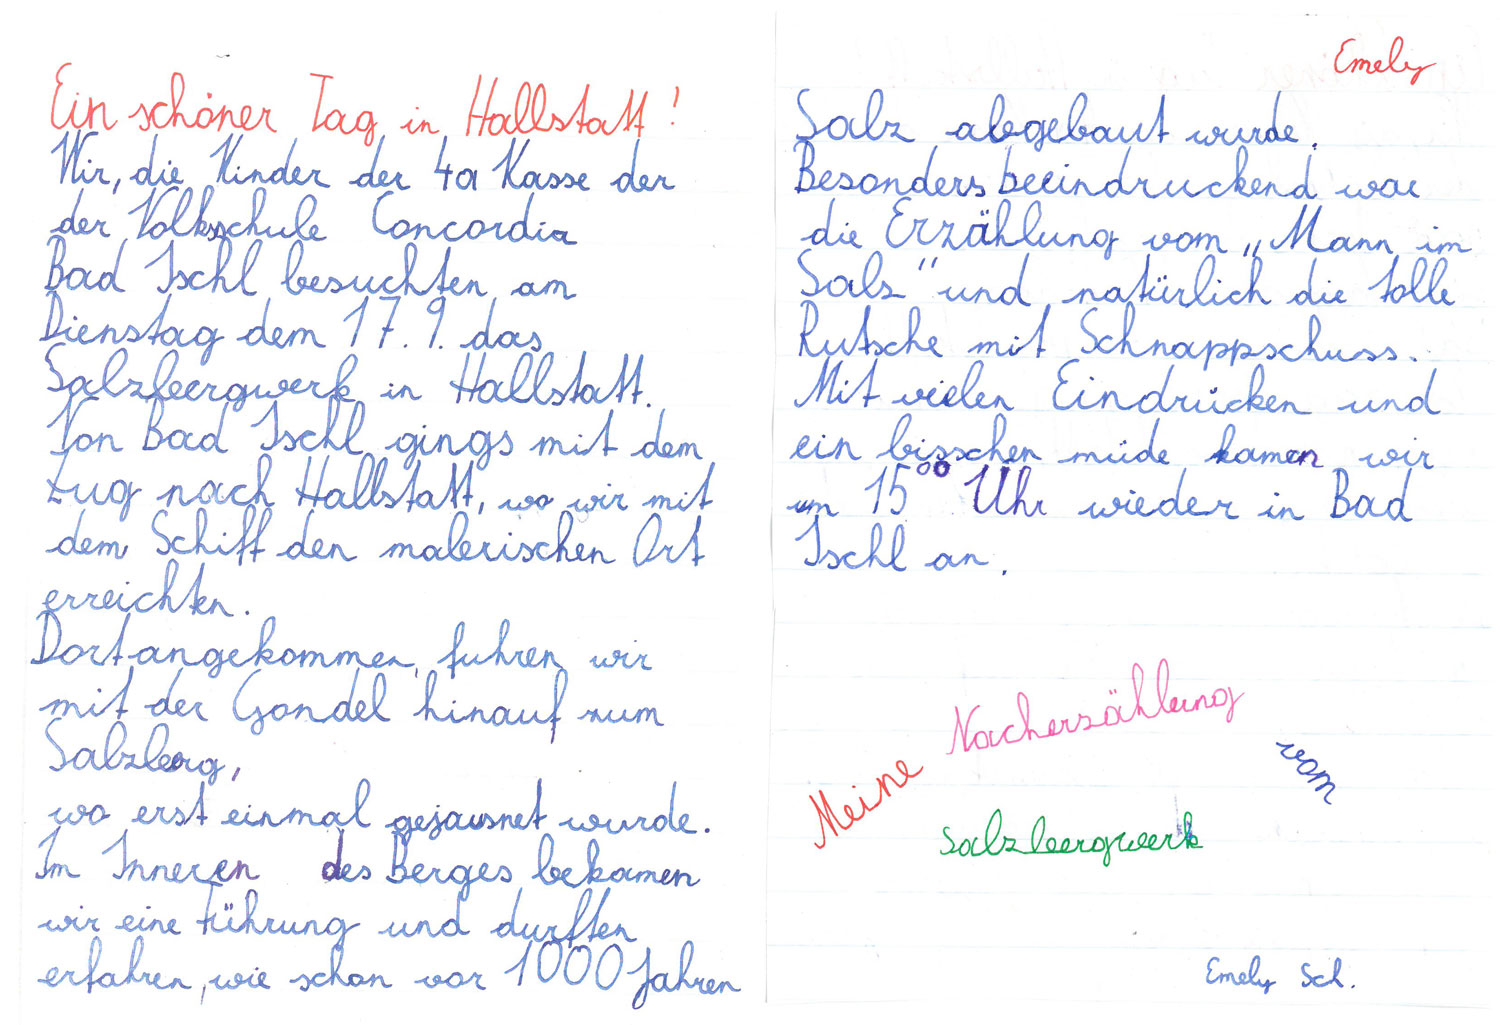 Ein schöner Tag in Hallstatt!
Wir, die Kinder der 4a Kasse der
der Volksschule Concordia
Bad Ischl besuchten am
Dienstag dem 17.9. das
Salzbergwerk in Hallstatt.
Von Bad Ischl gings mit dem
Zug nach Hallstatt, wo wir mit
dem Schiff den malerischen Ort
erreichten.
Dort angekommen, fuhren wir
mit der Gondel hinauf zum
Salzberg,
wo erst einmal gejausnet wurde.
Im Inneren des Berges bekamen
wir eine Führung und durften
erfahren, wie schon vor 1000 Jahren
Emely
Salz abgebaut wurde.
Besonders beeindruckend war
die Erzählung vom „Mann im
Salz" und natürlich die tolle
Rutsche mit Schnappschuss.
Mit vielen Eindrücken und
ein bisschen müde kamen wir
um 15⁰⁰ Uhr wieder in Bad
Ischl an.
Meine Nacherzählung vom
Salzbergwerk
Emely Sch.